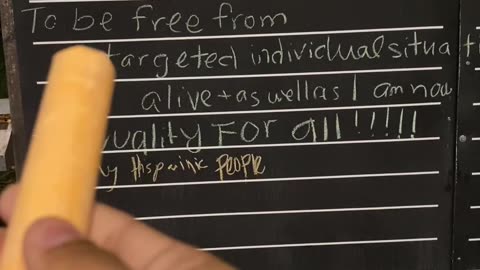 To be free from
targeted individual situa ti
alive + as well as I am now
uality For all!!!!!!
y Hispinic PEOPlE